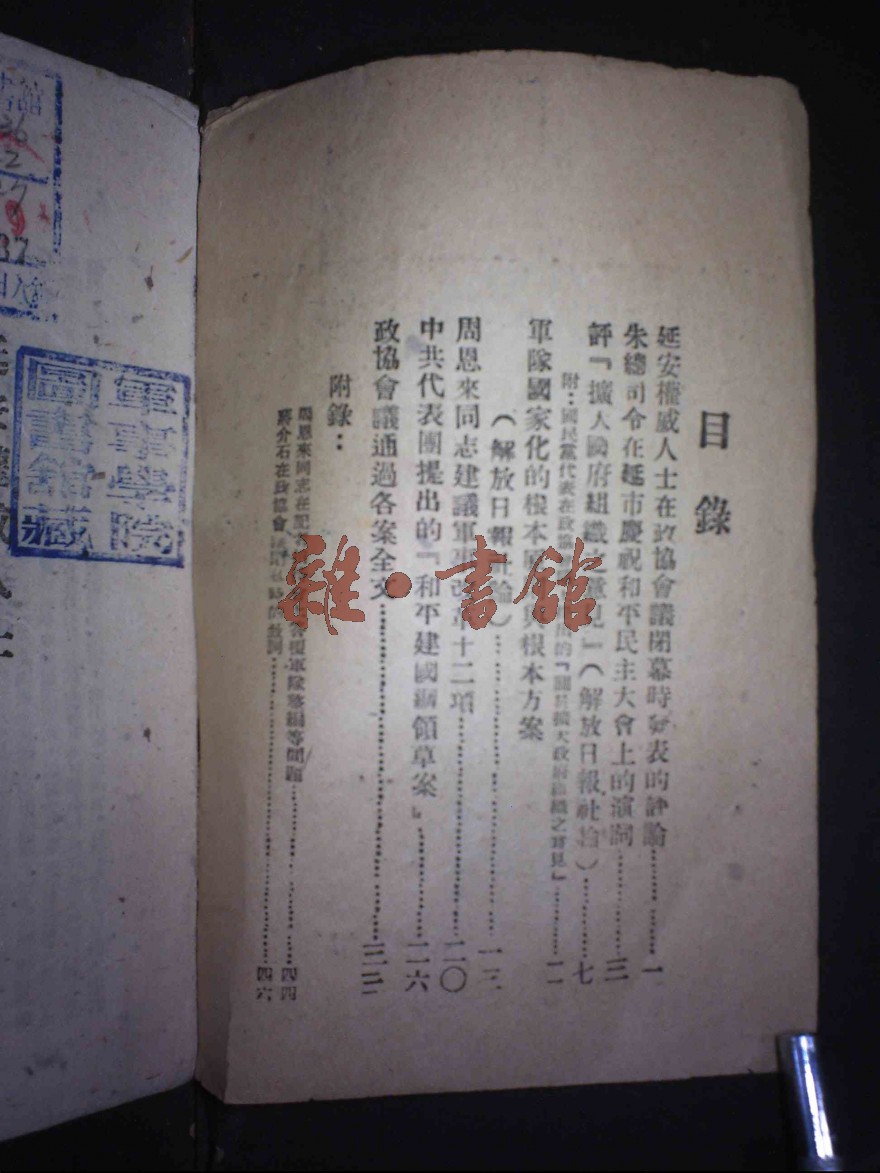 目錄
延安權威人士在政協會議閉幕時發表的評論……………一
朱總司令在延市慶祝和平民主大會上的演詞……………三
評『擴大國府組織 意見』（解放日報社論）……………七
附：國民黨代表在政協 的『關於擴大政府組織之意見』……………一一
軍隊國家化的根本 與根本方案
（解放日報 論）……………一三
周恩來同志建議軍 十二項……………二〇
中共代表團提出的『和平建國綱領草案』……………二六
政協會議通過各案全文……………三二
附錄：
周恩來同志在記 答復軍隊整編等問題……………四四
蔣介石在政協會 的致詞……………四六
雜·書館
軍事學院
圖書館藏
書館
37